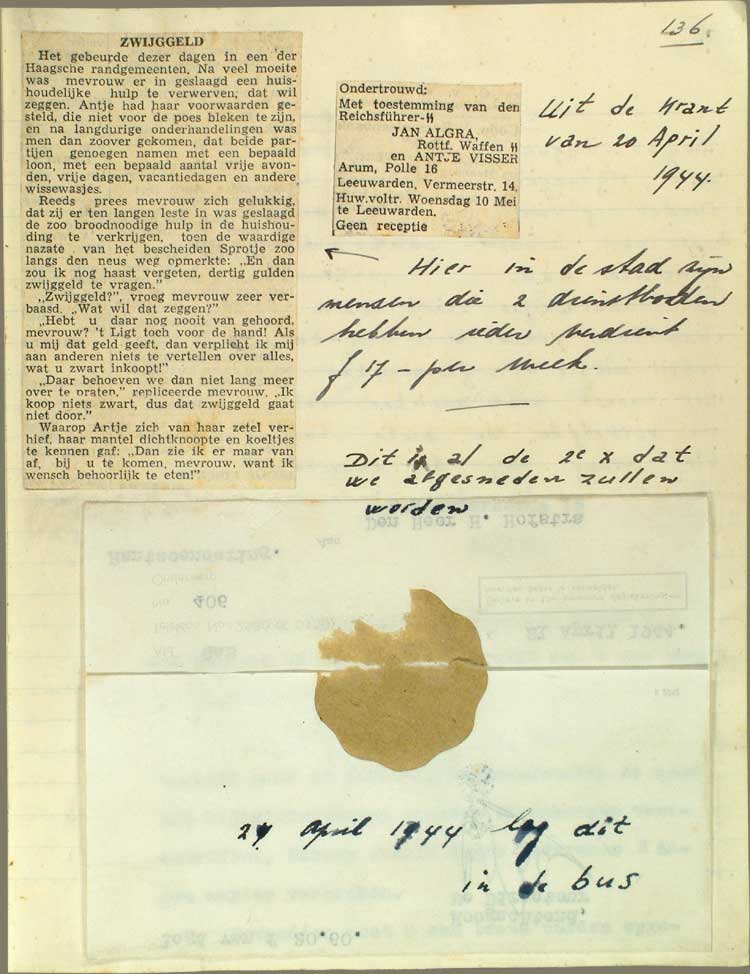 136.
ZWIJGGELD
Het gebeurde dezer dagen in een der
Haagsche randgemeenten. Na veel moeite
was mevrouw er in geslaagd een huis-
houdelijke hulp te verwerven, dat wil
zeggen. Antje had haar voorwaarden ge-
steld, die niet voor de poes bleken te zijn,
en na langdurige onderhandelingen was
men dan zoover gekomen, dat beide par-
tijen genoegen namen met een bepaald
loon, met een bepaald aantal vrije avon-
den, vrije dagen, vacantiedagen en andere
wissewasjes.
Reeds prees mevrouw zich gelukkig,
dat zij er ten langen leste in was geslaagd
de zoo broodnoodige hulp in de huishou-
ding te verkrijgen, toen de waardige
nazate van het bescheiden Sprotje zoo
langs den neus weg opmerkte: „En dan
zou ik nog haast vergeten, dertig gulden
zwijggeld te vragen."
„Zwijggeld?", vroeg mevrouw zeer ver-
baasd. „Wat wil dat zeggen?"
„Hebt u daar nog nooit van gehoord,
mevrouw? 't Ligt toch voor de hand! Als
u mij dat geld geeft, dan verplicht ik mij
aan anderen niets te vertellen over alles,
wat u zwart inkoopt!"
„Daar behoeven we dan niet lang meer
over te praten," repliceerde mevrouw. „Ik
koop niets zwart, dus dat zwijggeld gaat
niet door."
Waarop Artje zich van haar zetel ver-
hief, haar mantel dichtknoopte en koeltjes
te kennen gaf: „Dan zie ik er maar van
af, bij u te komen, mevrouw. want ik
wensch behoorlijk te eten!"
Ondertrouwd:
Met toestemming van den
Reichsführer-SS
JAN ALGRA,
Rottf. Waffen SS
en ANTJE VISSER
Arum, Polle 16
Leeuwarden, Vermeerstr. 14.
Huw.voltr. Woensdag 10 Mei
te Leeuwarden.
Geen receptie
Uit de Krant
van 20 April
1944.
Hier in de stad zijn
mensen die 2 dienstboden
hebben ieder verdient
f 17 – per week.
Dit is al de 2e x dat
we afgesneden zullen
worden
Den Heer H. Hofstra
Aan
Onderwerp
No. 406
Afd. GAS
21 April 1944.
April 1944 lag dit
in de bus
De Directeur
Hoogachtend,